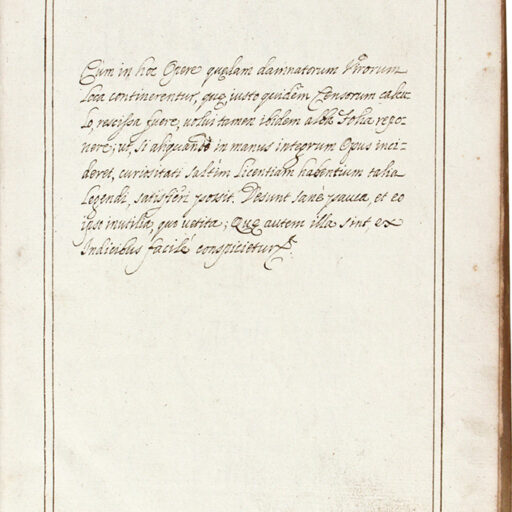 Cùm in hoc Opere quędam damnatorum Virorum
loca continerentur, quę iusto quidèm Censorum calcu-
lo, rescissa fuere; uolui tamen ibidem alba folia repo-
nere; ut, si aliquandò in manus integrum Opus inci-
deret, curiositati saltèm Licentiam habentium talia
Legendi, satisfieri possit. Desunt sanè pauca, et eo
ipso inutilia, quo uetita; Quę autem illa sint, ex
Indicibus facilè conspicietur.